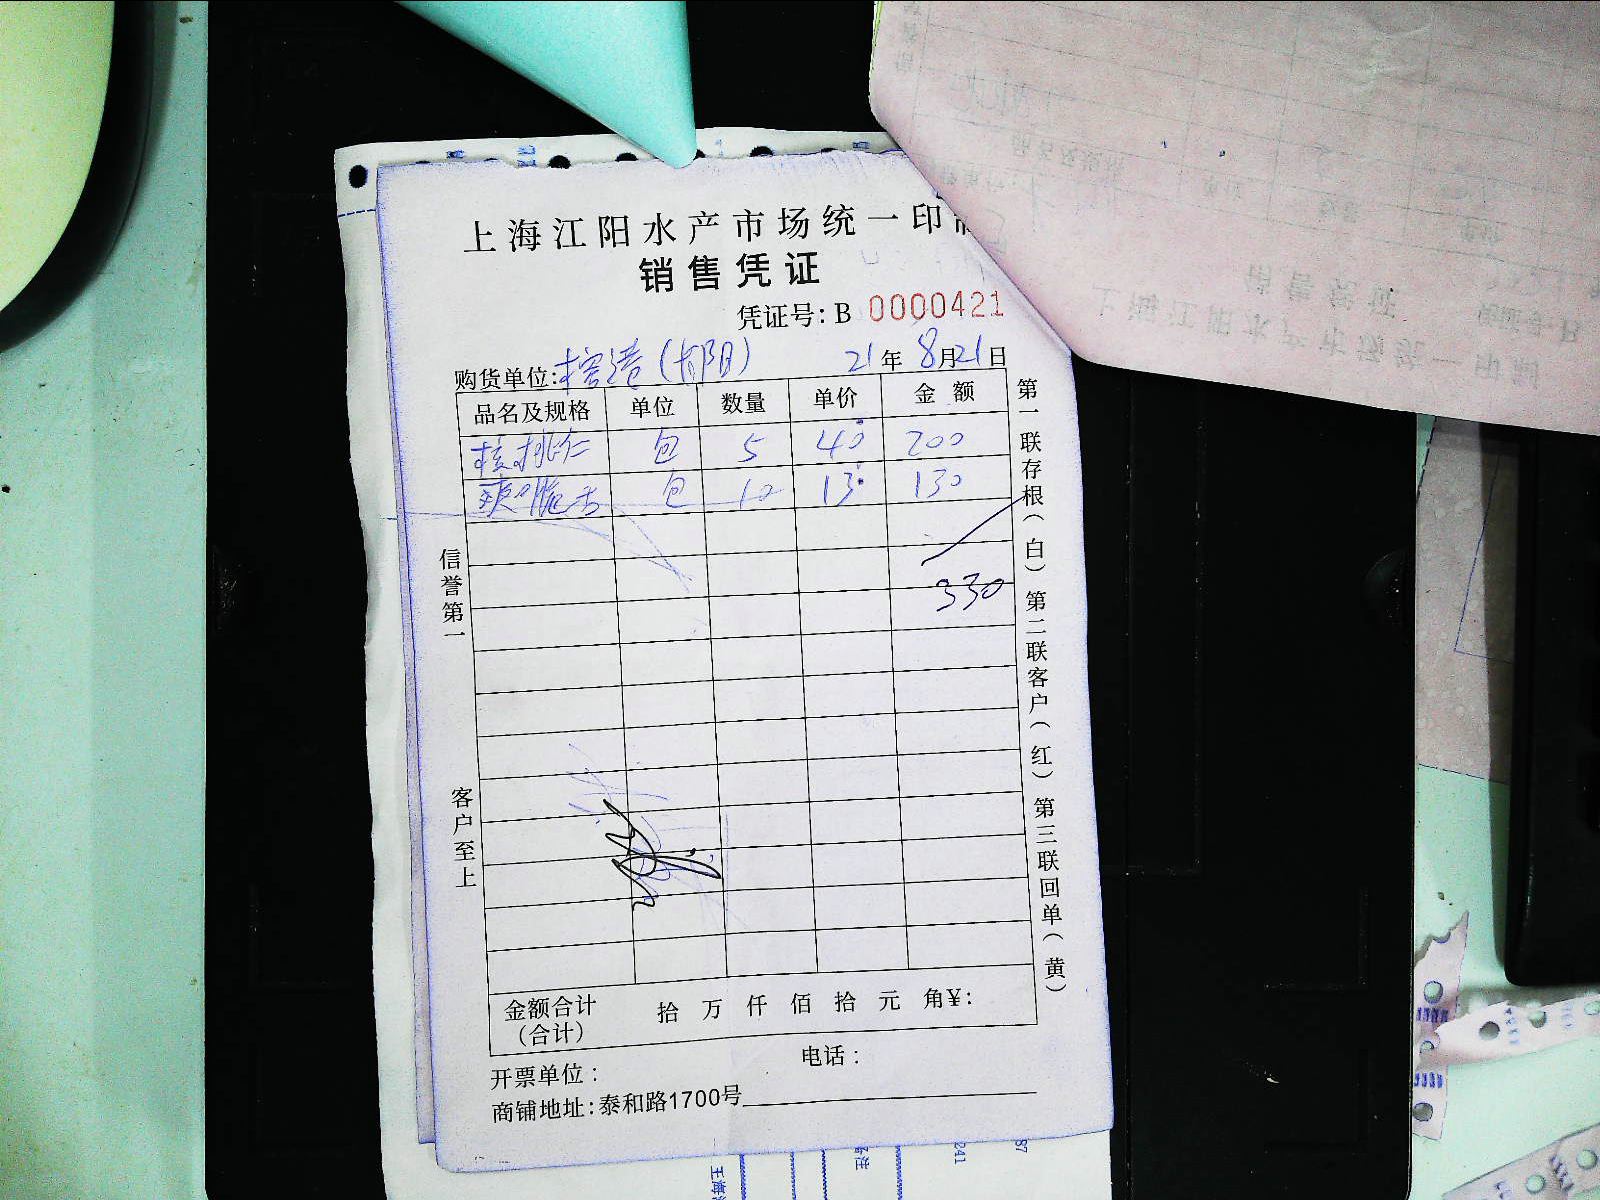 上海江阳水产市场统一印制
销售凭证
凭证号: B 0000421
购货单位: 榕港（郁阳） 21年 8月21日
品名及规格 单位 数量 单价 金额
核桃仁 包 5 40 200
爽脆舌 包 10 13 130
330
信誉第一
客户至上
第一联存根（白）第二联客户（红）第三联回单（黄）
金额合计 拾 万 仟 佰 拾 元 角¥:
（合计）
开票单位: 电话:
商铺地址: 泰和路1700号